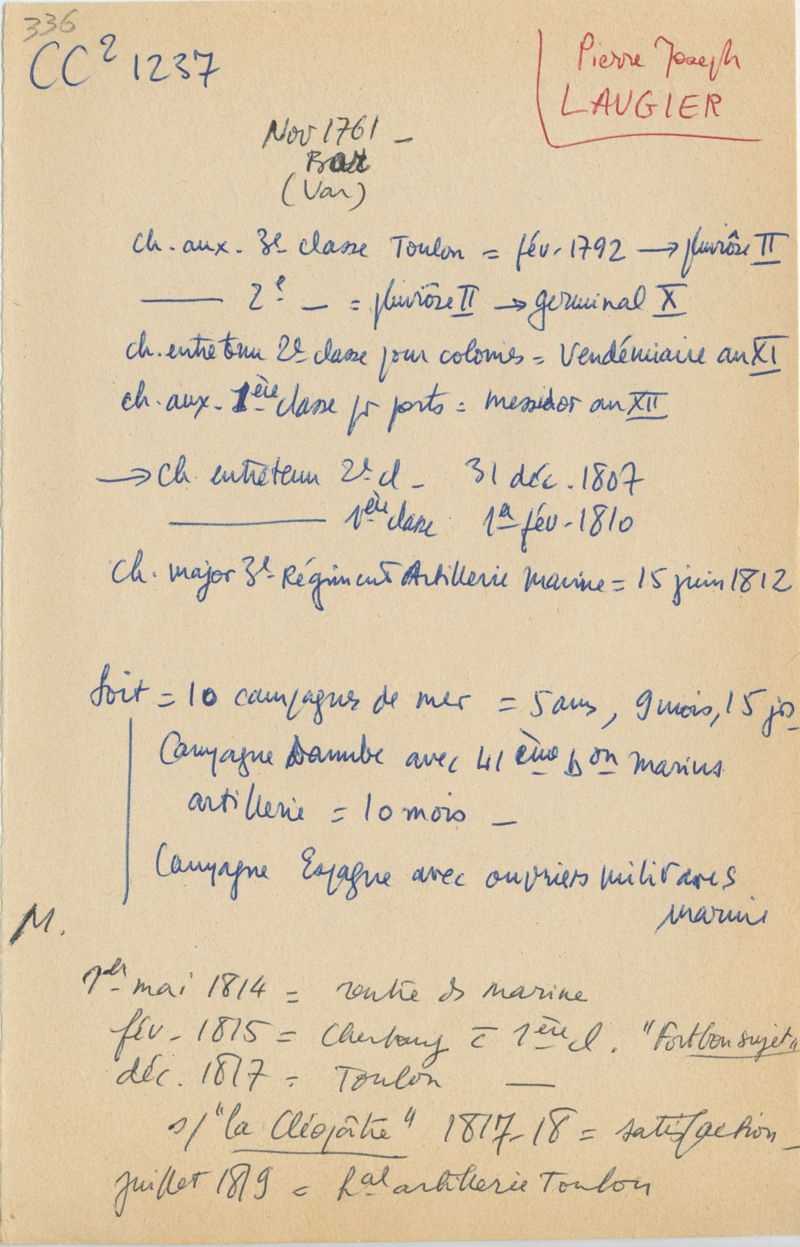 336
CC² 1237
Pierre Joseph
LAUGIER
Nov 1761 -
Bar
(Var)
ch. aux. 3e classe Toulon = fév. 1792 → pluviôse II
—— 2e — = pluviôse II → germinal X
ch. entretenu 2e classe pour colonies = Vendémiaire an XI
ch. aux. 1ère classe pr ports = messidor an XII
→ ch entretenu 2e cl - 31 déc. 1807
—— 1ère classe 1er fév. 1810
ch. major 3e Régiment Artillerie Marine = 15 juin 1812
Soit = 10 campagnes de mer = 5 ans, 9 mois, 15 jrs
Campagne Danube avec 41ème bon marins
artillerie = 10 mois -
Campagne Espagne avec ouvriers militaires
marine
M.
1er mai 1814 = rentre ds marine
fév. 1815 = Cherbourg c̄ 1ère cl. "Fort bon sujet"
déc. 1817 = Toulon —
s/ "la Cléopâtre" 1817-18 = satisfaction -
juillet 1819 = hal artillerie Toulon